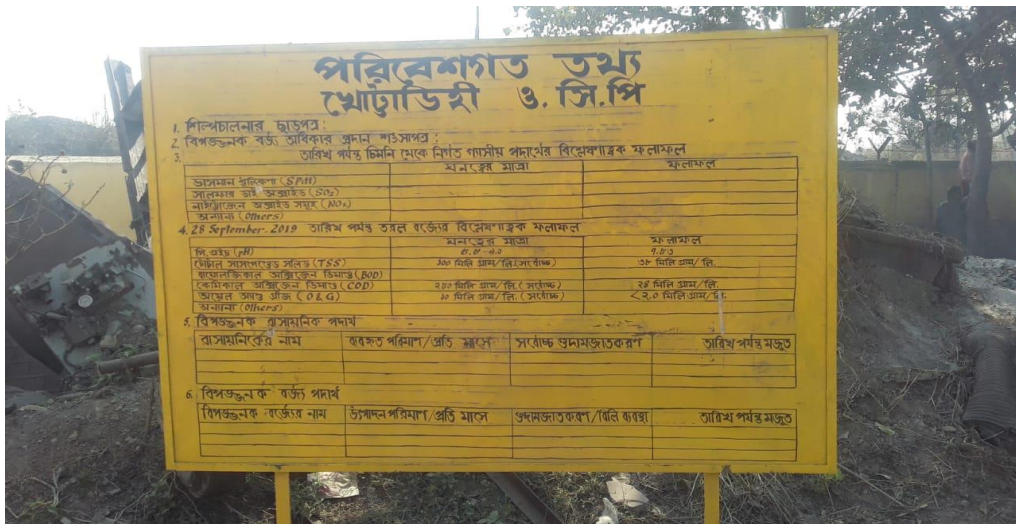 পরিবেশগত তথ্য
খোট্টাডিহী ও. সি.পি
1. শিল্পচালনার ছাড়পত্র :
2. বিপজ্জনক বর্জ্য অধিকার প্রদান শংসাপত্র :
3. তারিখ পর্যন্ত চিমনি থেকে নির্গত গ্যাসীয় পদার্থের বিশ্লেষণাত্বক ফলাফল
ঘনত্বের মাত্রা ফলাফল
ভাসমান ধূলিকণা (SPM)
সালফার ডাই অক্সাইড (SO₂)
নাইট্রোজেন অক্সাইড সমূহ (NOx)
অন্যান্য (Others)
4. 28 September. 2019 তারিখ পর্যন্ত তরল বর্জ্যের বিশ্লেষণাত্বক ফলাফল
ঘনত্বের মাত্রা ফলাফল
পি.এইচ (pH) ৫.৫ - ৯.০
টোটাল সাসপেন্ডেড সলিড (TSS) ১০০ মিলি গ্রাম/ লি. (সর্বোচ্চ) ৩৮ মিলি গ্রাম/ লি.
বায়োলজিকাল অক্সিজেন ডিমান্ড (BOD)
কেমিকাল অক্সিজেন ডিমান্ড (COD) ২৫০ মিলি গ্রাম/ লি. (সর্বোচ্চ) ২৪ মিলি গ্রাম/ লি.
অয়েল অ্যান্ড গ্রীজ (O & G) ১০ মিলি গ্রাম/ লি. (সর্বোচ্চ) < ২.০ মিলি গ্রাম/ লি.
অন্যান্য (Others)
5. বিপজ্জনক রাসায়নিক পদার্থ
রাসায়নিকের নাম ব্যবহৃত পরিমাণ/ প্রতি মাসে সর্বোচ্চ গুদামজাতকরণ তারিখ পর্যন্ত মজুত
6. বিপজ্জনক বর্জ্য পদার্থ
বিপজ্জনক বর্জ্যের নাম উৎপাদন পরিমাণ/ প্রতি মাসে গুদামজাতকরণ/ বিলি ব্যবস্থা তারিখ পর্যন্ত মজুত